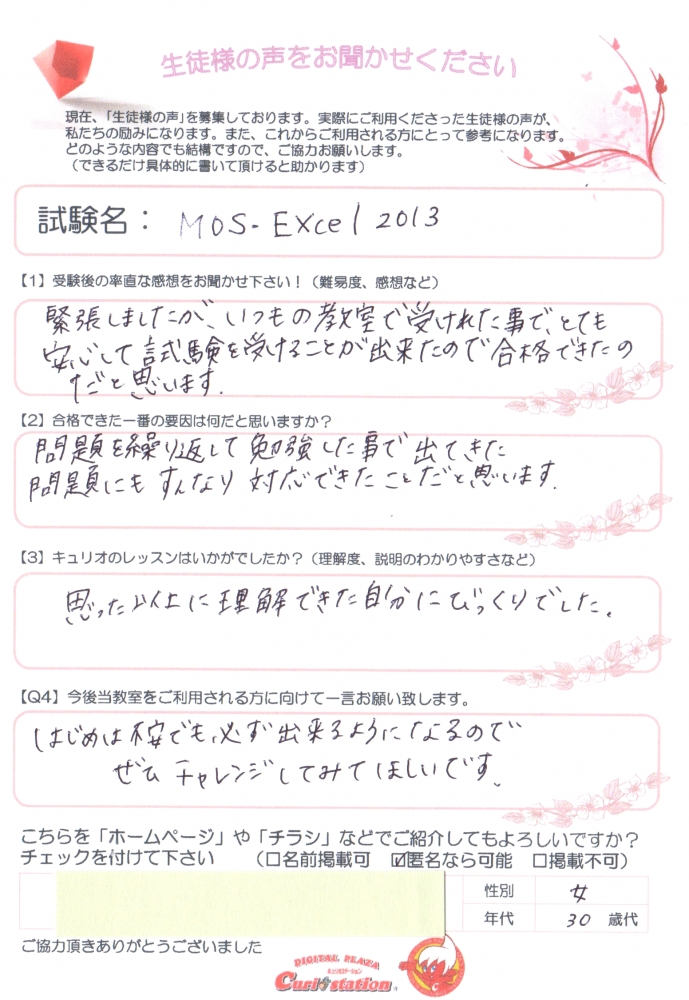 生徒様の声をお聞かせください
現在、「生徒様の声」を募集しております。実際にご利用くださった生徒様の声が、
私たちの励みになります。また、これからご利用される方にとって参考になります。
どのような内容でも結構ですので、ご協力お願いします。
（できるだけ具体的に書いて頂けると助かります）
試験名： MOS-EXcel 2013
【1】受験後の率直な感想をお聞かせ下さい！（難易度、感想など）
緊張しましたが、いつもの教室で受けれた事で、とても
安心して試験を受けることが出来たので合格できたの
だと思います。
【2】合格できた一番の要因は何だと思いますか？
問題を繰り返して勉強した事で出てきた
問題にもすんなり対応できたことだと思います。
【3】キュリオのレッスンはいかがでしたか？（理解度、説明のわかりやすさなど）
思った以上に理解できた自分にびっくりでした。
【Q4】今後当教室をご利用される方に向けて一言お願い致します。
はじめは不安でも、必ず出来るようになるので
ぜひチャレンジしてみてほしいです。
こちらを「ホームページ」や「チラシ」などでご紹介してもよろしいですか？
チェックを付けて下さい （□名前掲載可 ☑匿名なら可能 □掲載不可）
性別 女
年代 30 歳代
ご協力頂きありがとうございました
DIGITAL PLAZA
キュリオステーション
Curio station